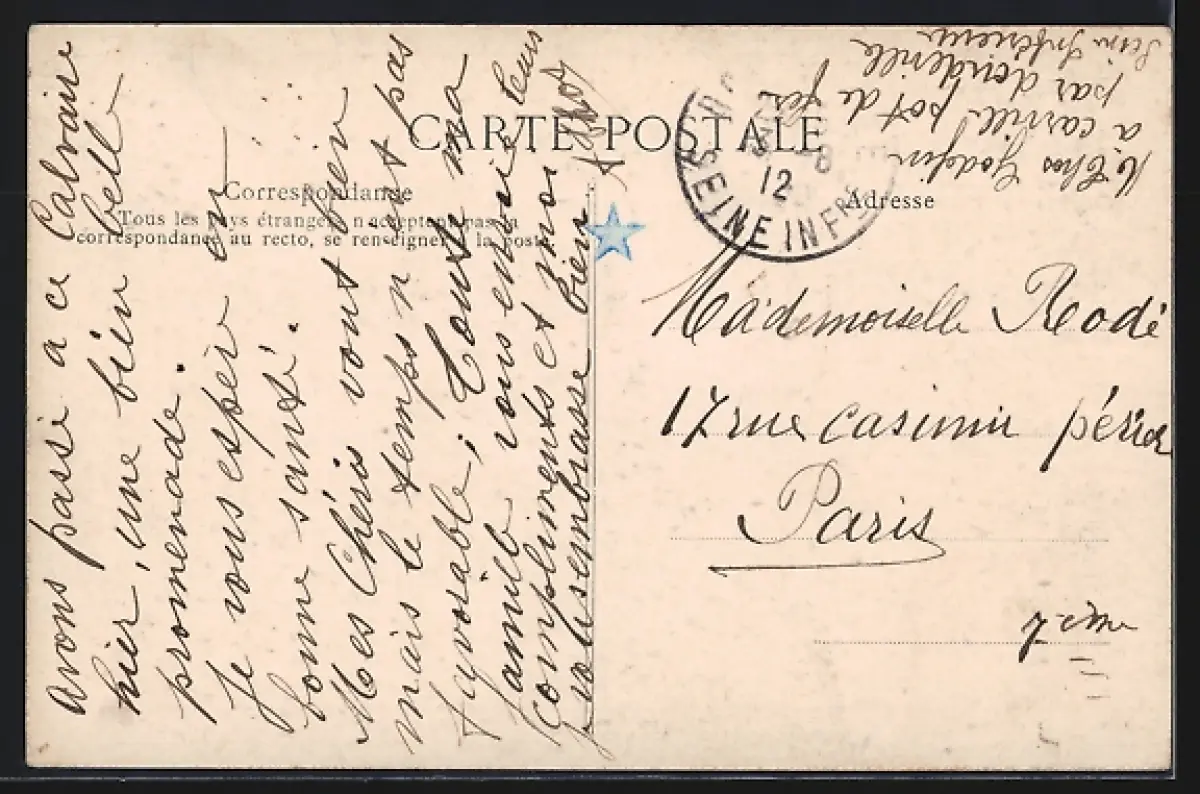 CARTE POSTALE
Correspondance
Tous les pays étrangers n'acceptent pas la
correspondance au recto, se renseigner à la poste.
Adresse
avons passé a ce Calvaire
hier, une bien belle
promenade.
Je vous espère en
bonne santé.
Mes Chéris vont bien
mais le temps n est pas
favorable; Toute ma
famille vous envoie leurs
compliments et moi
je vous embrasse bien
12
SEINE INFRE
a carville pot de fer
par doudeville
Seine Inférieure
Mademoiselle Rodé
17 rue Casimir périer
Paris
7ème